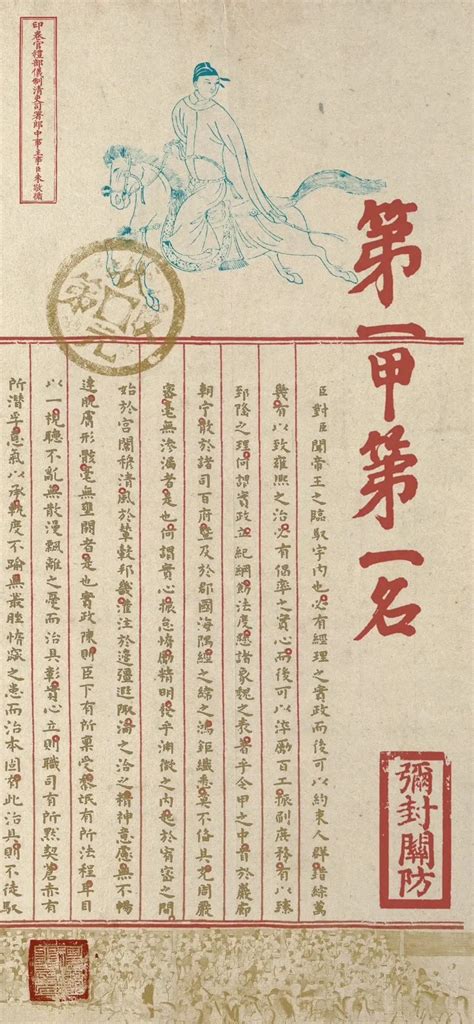 第一甲第一名
彌封關防
印卷官禮部儀制清吏司署郎中事主事臣朱敬循
臣對臣聞帝王之臨馭宇內也必有經理之實政而後可以約束人群錯綜萬
幾有以致雍熙之治必有倡率之實心而後可以淬勵百工振刷庶務有以臻
郅隆之理何謂實政立紀綱飭法度懸諸象魏之表著乎令甲之中首於巖廊
朝寧散於諸司百府暨及於郡國海隅經之緯之鴻鉅纖悉莫不備具充周嚴
密毫無滲漏者是也何謂實心振怠惰勵精明發乎淵微之內起於宥密之間
始於宮闈穆清風於輦轂邦畿灌注於邊疆遐陬淪之洽之精神意慮無不暢
達肌膚形骸毫無壅閼者是也實政陳則臣下有所稟受黎氓有所法程耳目
以一視聽不亂無散漫飄離之憂而治具彰實心立則職司有所默契蒼赤有
所潛孚意氣以承軌度不踰無叢脞惰窳之患而治本固有此治具則不徒馭